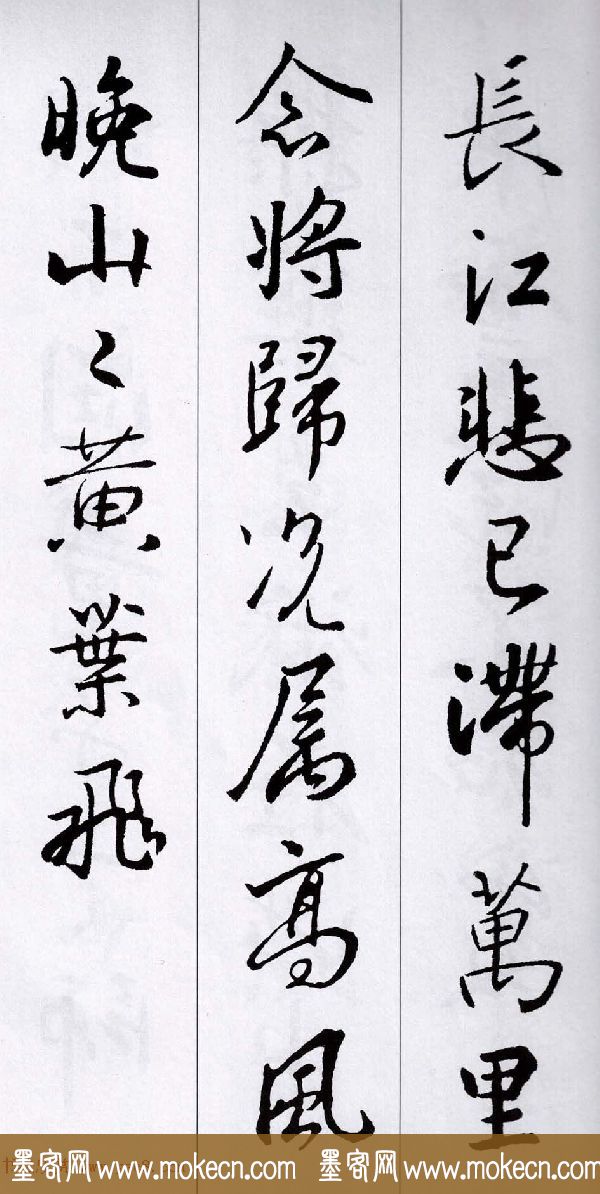 長江悲已滯萬里
念将歸况属高風
晚山〻黄葉飛
墨客网 www.mokecn.com 墨客网 www.mokecn.com